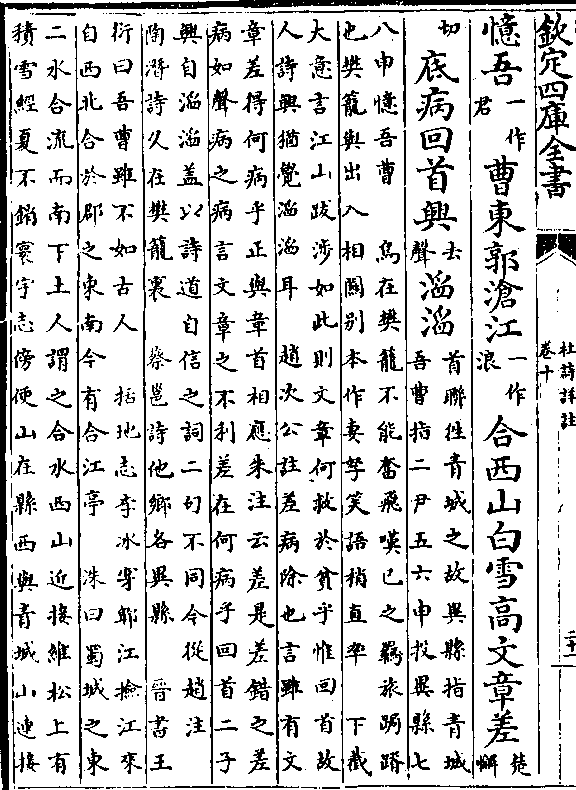 欽定四庫全書
杜詩詳註
卷十
二十一
憶吾一作君曹東郭滄江一作浪合西山白雪高文章差楚懈
切底病回首興去聲滔滔首聯往青城之故異縣指青城
吾曹指二尹五六申投異縣七
八申憶吾曹 鳥在樊籠不能奮飛嘆已之羈旅跼蹐
也樊籠與出入相關別本作妻孥笑語稍直率 下截
大意言江山跋涉如此則文章何救於貧乎惟回首故
人詩興猶覺滔滔耳 趙次公註差病除也言雖有文
章差得何病乎正與章首相應朱注云差是差錯之差
病如聲病之病言文章之不利差在何病乎回首二子
興自滔滔蓋以詩道自信之詞二句不同今從趙注
陶潛詩久在樊籠裏 蔡邕詩他鄉各異縣 晉書王
衍曰吾曹雖不如古人 括地志李冰穿郫江撿江來
自西北合於郡之東南今有合江亭 洙曰蜀城之東
二水合流而南下土人謂之合水西山近接維松上有
積雪經夏不銷寰宇志傍便山在縣西與青城山連接